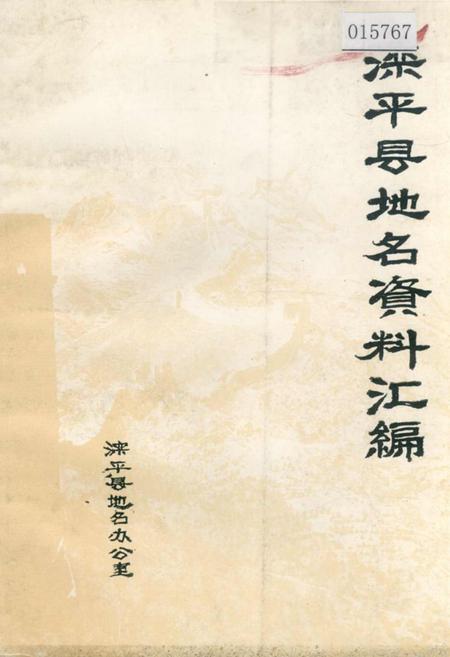 015767
滦平县地名資料汇編
滦平县地名办公室